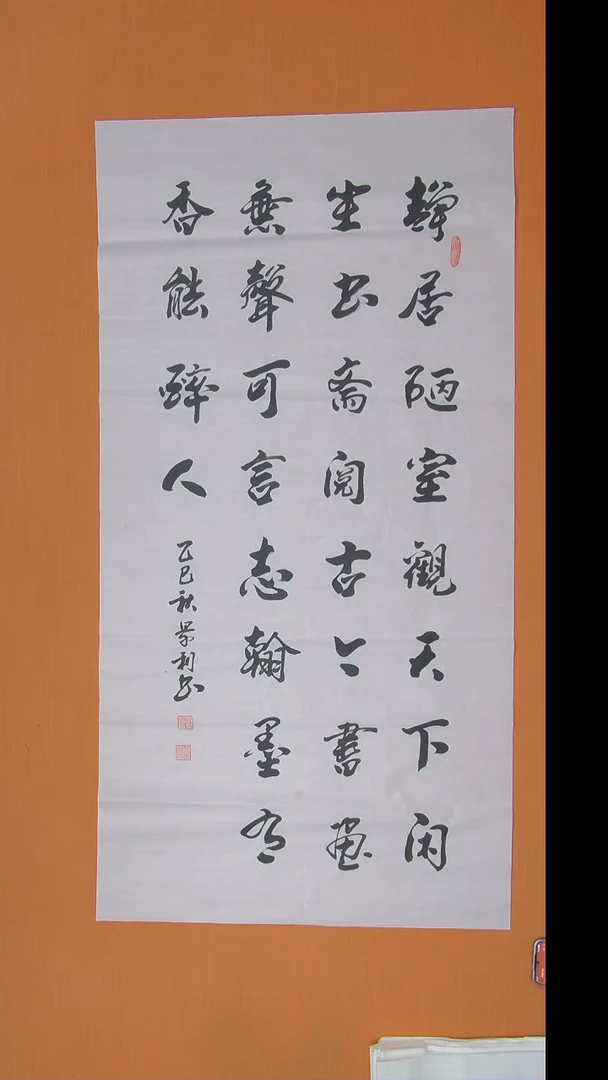 靜居陋室觀天下閑
坐书斋閲古今書畫
無聲可言志翰墨有
香能醉人
乙巳秋景利书